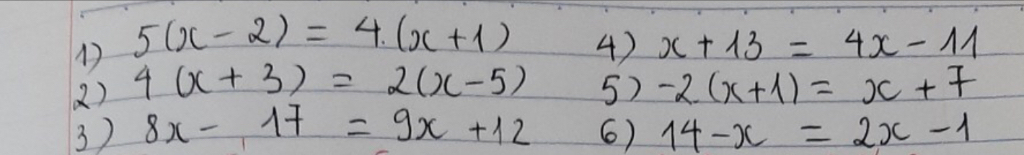 1) 5(x - 2) = 4.(x + 1)
2) 4 (x + 3) = 2(x - 5)
3) 8x - 17 = 9x + 12
4) x + 13 = 4x - 11
5) -2(x+1) = x + 7
6) 14 - x = 2x - 1